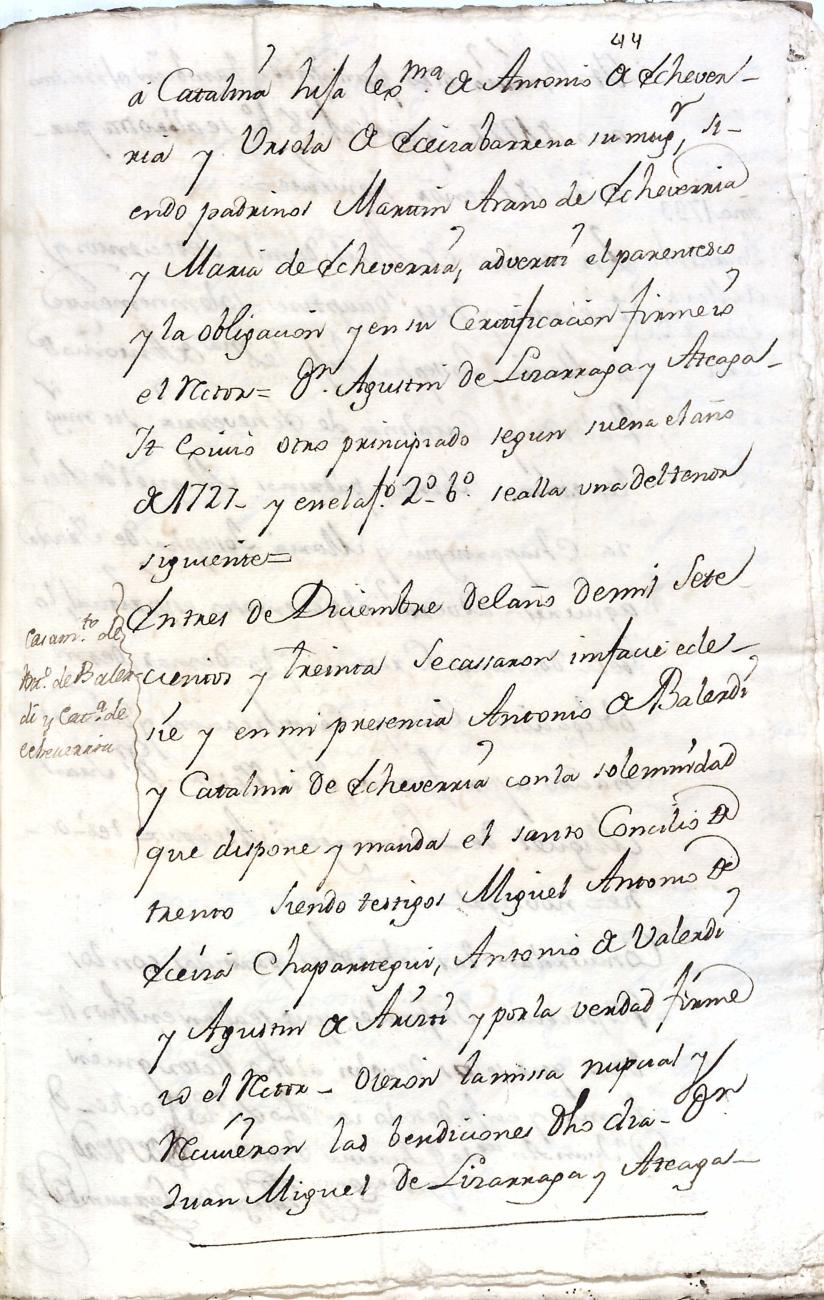 44
a Catalina hija lexma. de Antonio de Echever-
ria y Ursola de Eleizabarrena su mugr, si-
endo padrinos Martin Arano de Echeverria
y Maria de Echeverria, adverti el parentesco
y la obligacion y en su Certificacion firme io
el Rector= Dn. Agustin de Lizarraga y Ateaga-
It exivio otro principiado segun suena el año
de 1727- y en el a fo. 2o. bo. se alla una del tenor
siguiente=
En tres de Diciembre del año de mil sete
cientos y treinta se cassaron in facie ecle-
sie y en mi presencia Antonio de Balerdi
y Catalina de Echeverria con la solemnidad
que dispone y manda el santo Concilio de
trento siendo testigos Miguel Antonio de
Eleiza Chaparttegui, Antonio de Valerdi
y Agustin de Ariztti y por la verdad firme
io el Rector- Oieron la missa nupcial y
Recivieron las bendiciones dho dia- Dn
Juan Miguel de Lizarraga y Ateaga-
Casamto. de
Anto. de Baler
di y Cata. de
echeverria